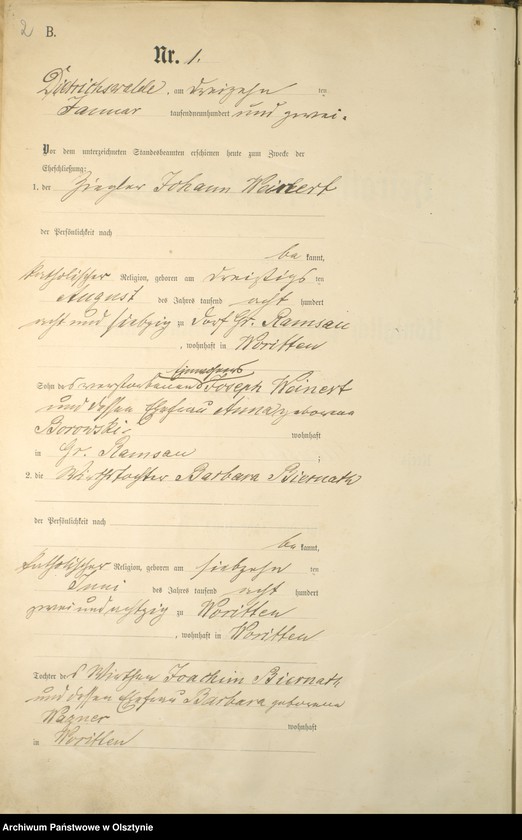 2 B.
Nr. 1.
Dietrichswalde, am dreizehn ten
Januar tausendneunhundert und zwei.
Vor dem unterzeichneten Standesbeamten erschienen heute zum Zwecke der
Eheschließung:
1. der Ziegler Johann Weinert
der Persönlichkeit nach
be kannt,
katholischer Religion, geboren am dreißigs ten
August des Jahres tausend acht hundert
acht und siebzig zu Dorf Gr. Ramsau
, wohnhaft in Woritten
Einwohners
Sohn des verstorbenen Joseph Weinert
und dessen Ehefrau Anna geborene
Borowski
wohnhaft
in Gr. Ramsau ;
2. die Wirthstochter Barbara Biernath
der Persönlichkeit nach
be kannt,
katholischer Religion, geboren am siebzehn ten
Juni des Jahres tausend acht hundert
zwei und achtzig zu Woritten
, wohnhaft in Woritten
Tochter des Wirthen Joachim Biernath
und dessen Ehefrau Barbara geborene
Wagner
wohnhaft
in Woritten
Archiwum Państwowe w Olsztynie